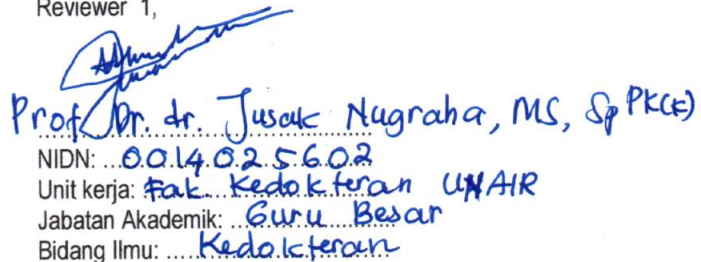 Reviewer 1,
Prof. Dr. dr. Jusak Nugraha, MS, Sp PK(K)
NIDN: ...0014025602
Unit kerja: Fak. Kedokteran UNAIR
Jabatan Akademik: ...Guru Besar
Bidang Ilmu: .....Kedokteran